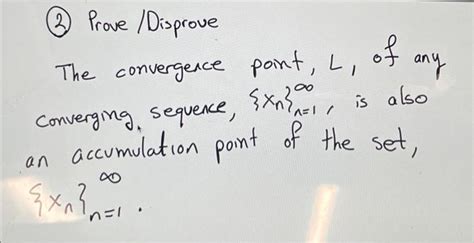 ② Prove / Disprove
The convergence point, L, of any
converging sequence, {xₙ}ₙ₌₁^∞, is also
an accumulation point of the set,
{xₙ}ₙ₌₁^∞.